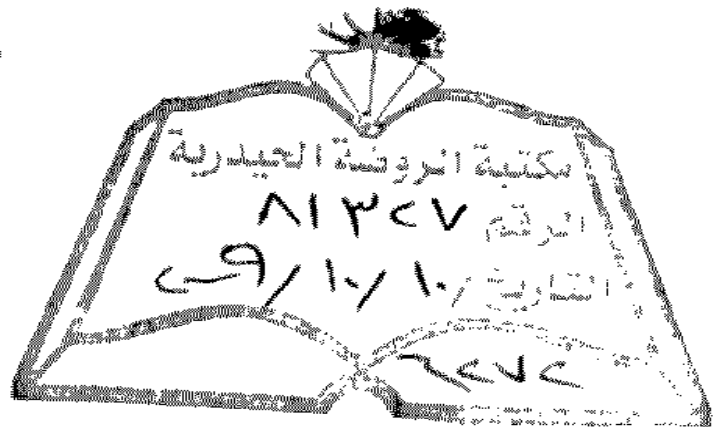 مكتبة الروضة الحيدرية
الرقم ٨١٣٢٧
التاريخ ١٠/١٠/